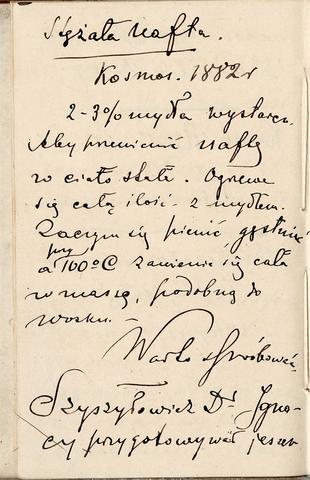 Stężała Nafta.
Kosmos. 1882 r
2-3% mydła wystarcz.
Aby przemienić naftę
w ciało stałe. Ogrzewa
się całą ilość z mydłem.
Zaczyna się pienić gęstnieć
przy
a 100°C zamienia się cała
w masę, podobną do
wosku.
Warto spróbować.
Szyszyłowicz Dr Igna-
cy przygotowywał jeszcze